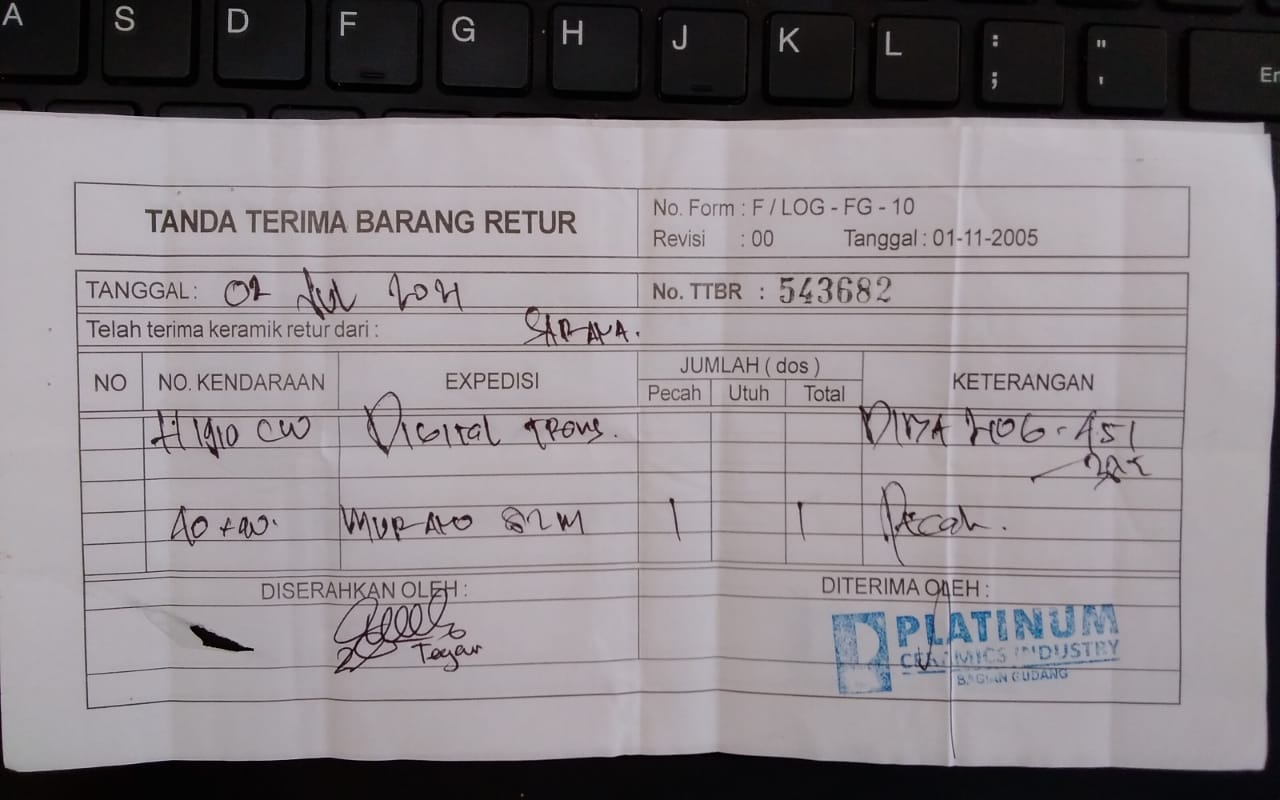 A S D F G H J K L : ; " ' En
TANDA TERIMA BARANG RETUR
No. Form : F / LOG - FG - 10
Revisi : 00 Tanggal : 01-11-2005
TANGGAL : 02 Jul 2021
No. TTBR : 543682
Telah terima keramik retur dari : SARANA.
NO NO. KENDARAAN EXPEDISI JUMLAH ( dos ) KETERANGAN
Pecah Utuh Total
CW DIGITAL Trans.
40+40. MURANO 1 1 Pecah.
DISERAHKAN OLEH : DITERIMA OLEH :
PLATINUM
CERAMICS INDUSTRY
BAGIAN GUDANG